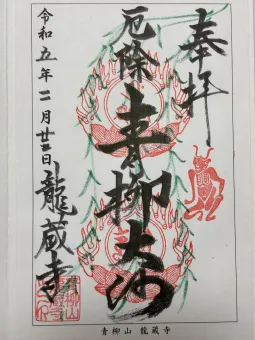 奉拝
厄除
青柳大師
令和五年二月廿三日
龍蔵寺
青柳山 龍蔵寺